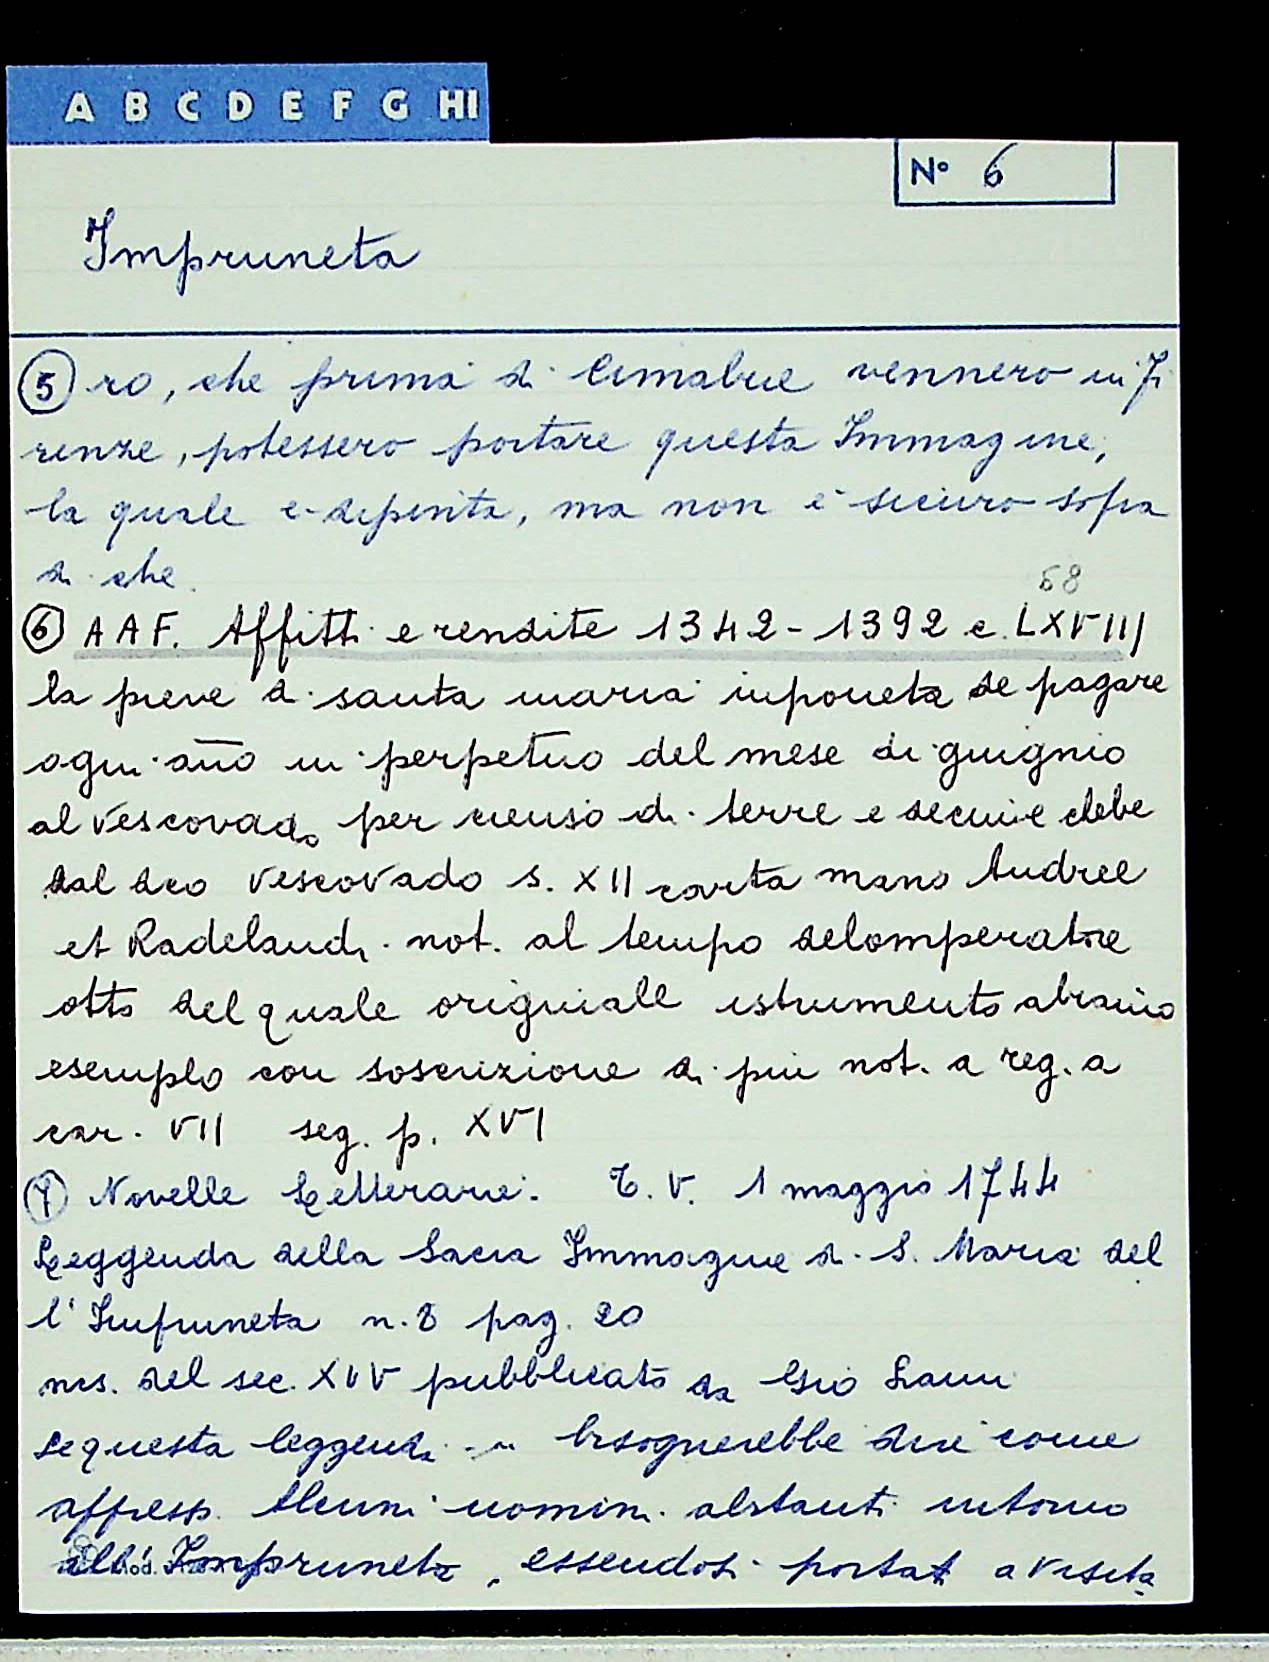 A B C D E F G HI
Nº 6
Impruneta
⑤ ro, che prima di Cimabue vennero in Fi
renze, potessero portare questa Immagine,
la quale è dipinta, ma non è sicuro sopra
di che.
68
⑥ A A F. Affitti e rendite 1342 - 1392 c. LXVIII
la pieve di santa maria inponeta de pagare
ogni año in perpetuo del mese di giugnio
al vescovado per cienso di terre e decime debe
dal deo vescovado s. XII carta mano Andree
et Radelandi not. al tempo delomperatore
otto del quale originiale istrumento abiamo
esemplo con soscrizione di piu not. a reg. a
car. VII seg. p. XVI
⑦ Novelle Letterarie. T. V. 1 maggio 1744
Leggenda della Sacra Immagine di S. Maria del
l'Impruneta n. 8 pag. 20
ms. del sec. XIV pubblicato da Gio Lami
se questa leggenda bisognerebbe dire come
appresso. Alcuni uomini abstanti intorno
all'Impruneta, essendosi portati a visita